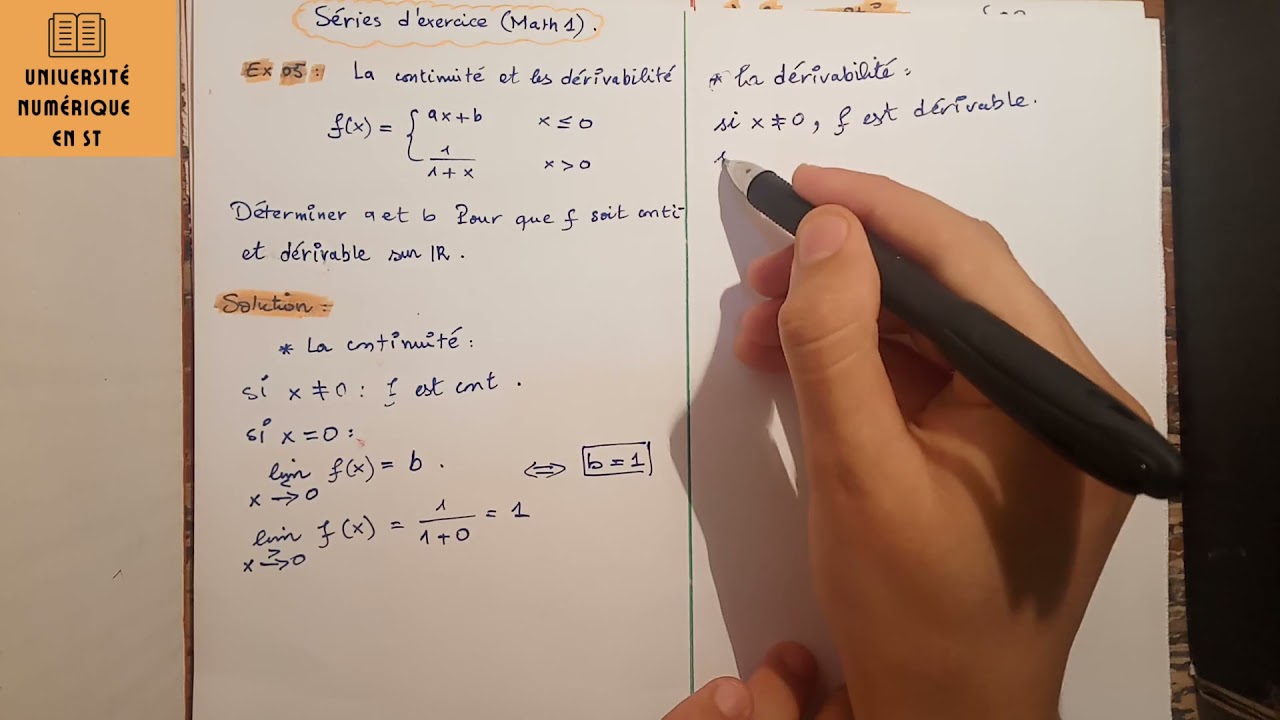 UNIVERSITÉ
NUMÉRIQUE
EN ST
Séries d'exercice (Math 1).
Ex 05: La continuité et les dérivabilité
f(x) = { ax+b x ≤ 0
1/(1+x) x > 0
Déterminer a et b Pour que f soit conti-
et dérivable sur IR.
Solution:
* La continuité:
si x ≠ 0 : f est cont.
si x = 0 :
lim f(x) = b. ⟺ b = 1
x →< 0
lim f(x) = 1/(1+0) = 1
x →> 0
* La dérivabilité:
si x ≠ 0, f est dérivable.